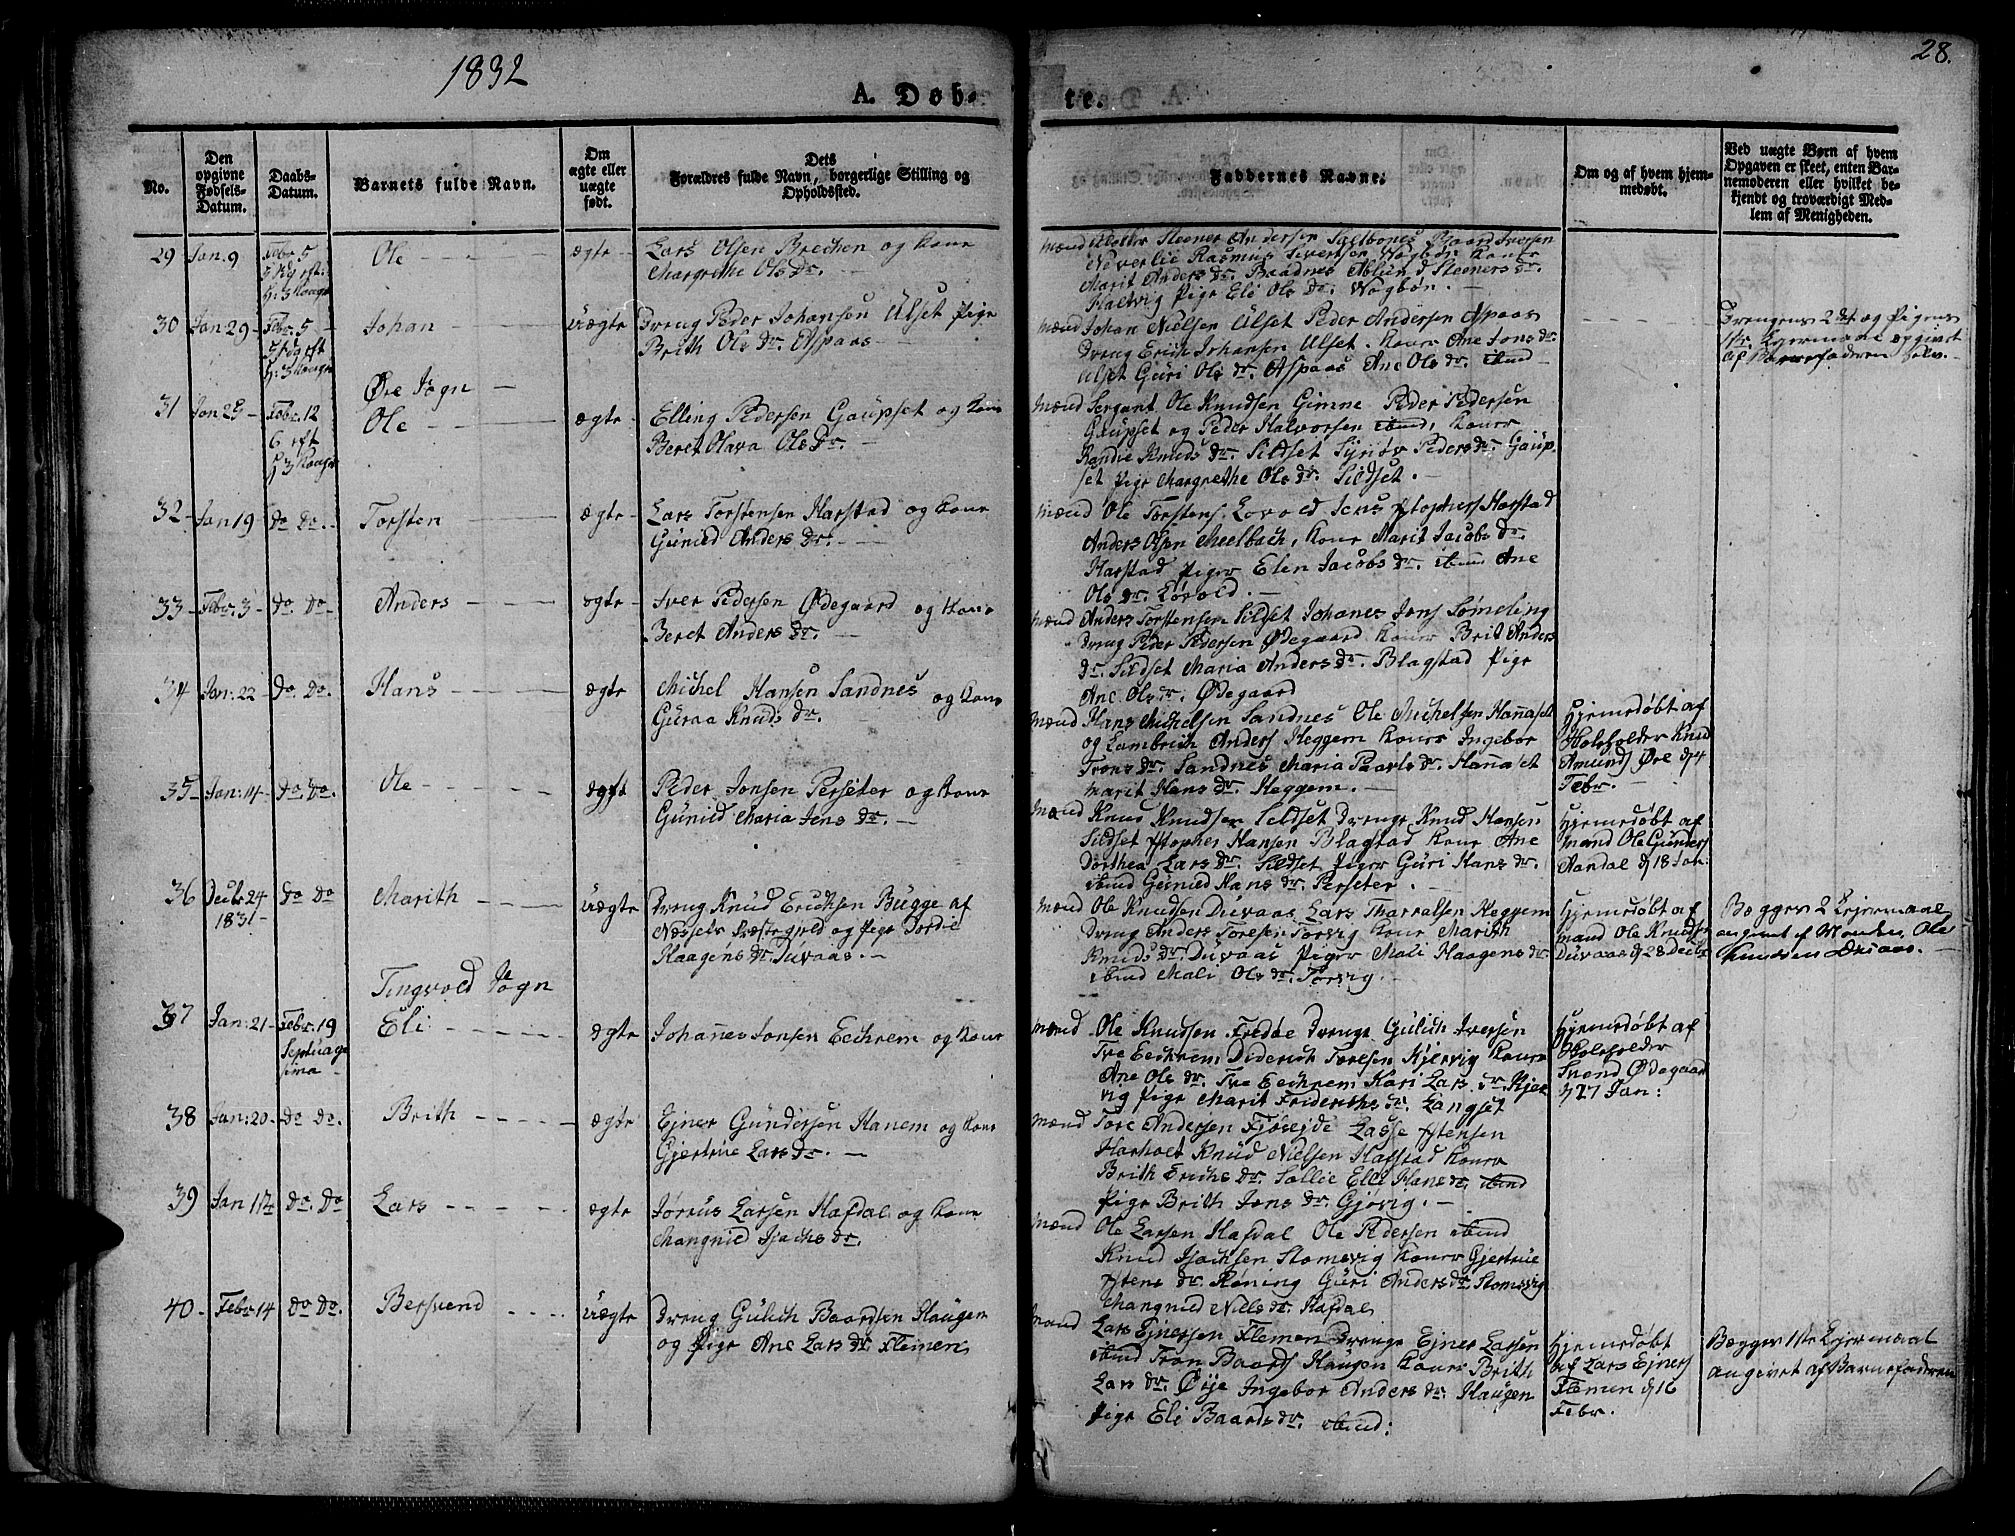 1832
28.
A. Døb-
te.
No.
Den opgivne Fødsels-Datum.
Daabs-Datum.
Barnets fulde Navn.
Om ægte eller uægte født.
Dets Forældres fulde Navn, borgerlige Stilling og Opholdssted.
Faddernes Navne.
Om og af hvem hjemmedøbt.
Ved uægte Børn af hvem Opgaven er skeet, enten Barnemoderen eller hvilket bekjendt og troværdigt Medlem af Menigheden.
29 Jan: 9 Febr. 5 Ole ægte Lars Olsen Brechen og Kone
Margrethe Ols Dr.
Steener Andersen Baard Iversen
Neverlie Rasmus Sivertsen Wogbøn Koner
Marit Anders Dr. Baadnes Steeners Dr.
Halwig Pige Eli Ols Dr. Wogbøn.
30 Jan 29 Febr. 5 Johan uægte Dreng Peder Johansen Ulset Pige
Brith Ols Dr. Aspaas
Mænd Johan Nielsen Ulset Peder Andersen Aspaas
Dreng Erich Johansen Ulset. Koner Ane Jons Dr.
Ulset Guri Ols Dr. Aspaas Ane Ols Dr. ibmd
Drengens 2det og Pigens
1ste Lejermaal opgivet
af Barnefaderen selv.
Øre Sogn
31 Jan 25 Febr. 12 Ole ægte Elling Pedersen Gaupset og Kone
Beret Olava Ols Dr.
Mænd Sergant Ole Knudsen Gimne Peder Pedersen
Gaupset og Peder Halvorsen ibmd, Koner
Randie Knuds Dr. Sildset Synøv Peders Dr. Gaup-
set Pige Margrethe Ols Dr. Sildset.
32 Jan 19 Do Do. Torsten ægte Lars Torstensen Harstad og Kone
Gunild Anders Dr.
Mænd Ole Torstens. Løvold Jens Harstad
Anders Olsen Meelbach, Kone Marit Jacobs Dr.
Harstad Piger Elen Jacobs Dr. ibmd Ane
Ols Dr. Løvold.
33 Febr. 3 Do Do Anders ægte Iver Pedersen Ødegaard og Kone
Beret Anders Dr.
Mænd Anders Torstensen Sildset Johanes Jens Sømeling
Dreng Peder Pedersen Ødegaard Koner Brit Anders
Dr. Sildset Maria Anders Dr. Blagstad Pige
Ane Ols Dr. Ødegaard
34 Jan: 22 Do Do. Hans ægte Michel Hansen Sandnes og Kone
Guraa Knuds Dr.
Mænd Hans Michelsen Sandnes Ole Michelsen Hanaset
og Lambrich Anders Heggem Koner Ingebor
Trons Dr. Sandnes Maria Paavls Dr. Hanaset
Marit Hans Dr. Heggem.
Hjemedøbt af
Knud
Amunds Øre d 4
Febr.
35 Jan: 14 Do Do. Ole ægt Peder Jonsen Perseter og Kone
Gunild Maria Jens Dr.
Mænd Knud Knudsen Sildset Drenge Knud Hansen
Sildset Hansen Blagstad Kone Ane
Dorthea Lars Dr. Sildset Piger Guri Hans Dr.
ibmd Gunild Hans Dr. Perseter.
Hjemedøbt af
Mand Ole Gunders
Aandal d 18 Jan:
36 Decbr 24 1831 Do Do Marith uægte Dreng Knud Erichsen Bugge af
Næssets Præstegjeld og Pige Jordie
Haagens Dr. Duvaas.
Mænd Ole Knudsen Duvaas Lars Tharralsen Heggem
Dreng Anders Toresen Torvig Kone Marith
Knuds Dr. Duvaas Piger Mali Haagens Dr.
ibmd Mali Ols Dr. Torvig.
Hjemedøbt af
Mand Ole Knudsen
Duvaas d 28 Decbr
Begges 2 Lejermaal
angivet af Manden Ole
Knudsen Duvaas.
Tingvold Sogn
37 Jan: 21 Febr. 19 Septuage-
sima Eli ægte Johannes Jonsen Eechrem og Kone
Mænd Ole Knudsen Fredøe Drenge Gulich Iversen
Tre Eechrem Diderich Toresen Kjervig Koner
Ane Ols Dr. Tre Eechrem Kari Lars Dr. Kjer-
vig Pige Marit Friderichs Dr. Langset
Hjemedøbt af
Svend Ødegaard
d 27 Jan:
38 Jan: 20 Do Do. Brith ægte Ejner Gundersen Hanem og Kone
Gjertrue Lars Dr.
Mænd Tore Andersen Lasse
Knud Nielsen Hafstad Koner
Brith Erichs Dr. Sollie Eli Hans Dr. ibmd
Pige Brith Jens Dr. Gjøvig.
39 Jan 17 Do. Do Lars ægte Larsen Hafdal og Kone
Mangnild Isachs Dr.
Mænd Ole Larsen Hafdal Ole Pedersen ibmd
Knud Isachsen Stomsvig Koner Gjertrue
Dr. Røning Guri Anders Dr. Stomsvig
Mangnild Niels Dr. Hafdal
40 Febr 14 Do Do. Bersvend uægte Dreng Gulich Baardsen Haugen
og Pige Ane Lars Dr. Flemen
Mænd Lars Ejnersen Flemen Drenge Ejner Larsen
ibmd Tron Baards Haugen Koner Brith
Lars Dr. Øye Ingebor Anders Dr. Haugen
Pige Eli Baards Dr. ibmd:
Hjemedøbt
af Lars Ejners
Flemen d 16
Febr.
Begges 1ste Lejermaal
angivet af Barnefaderen